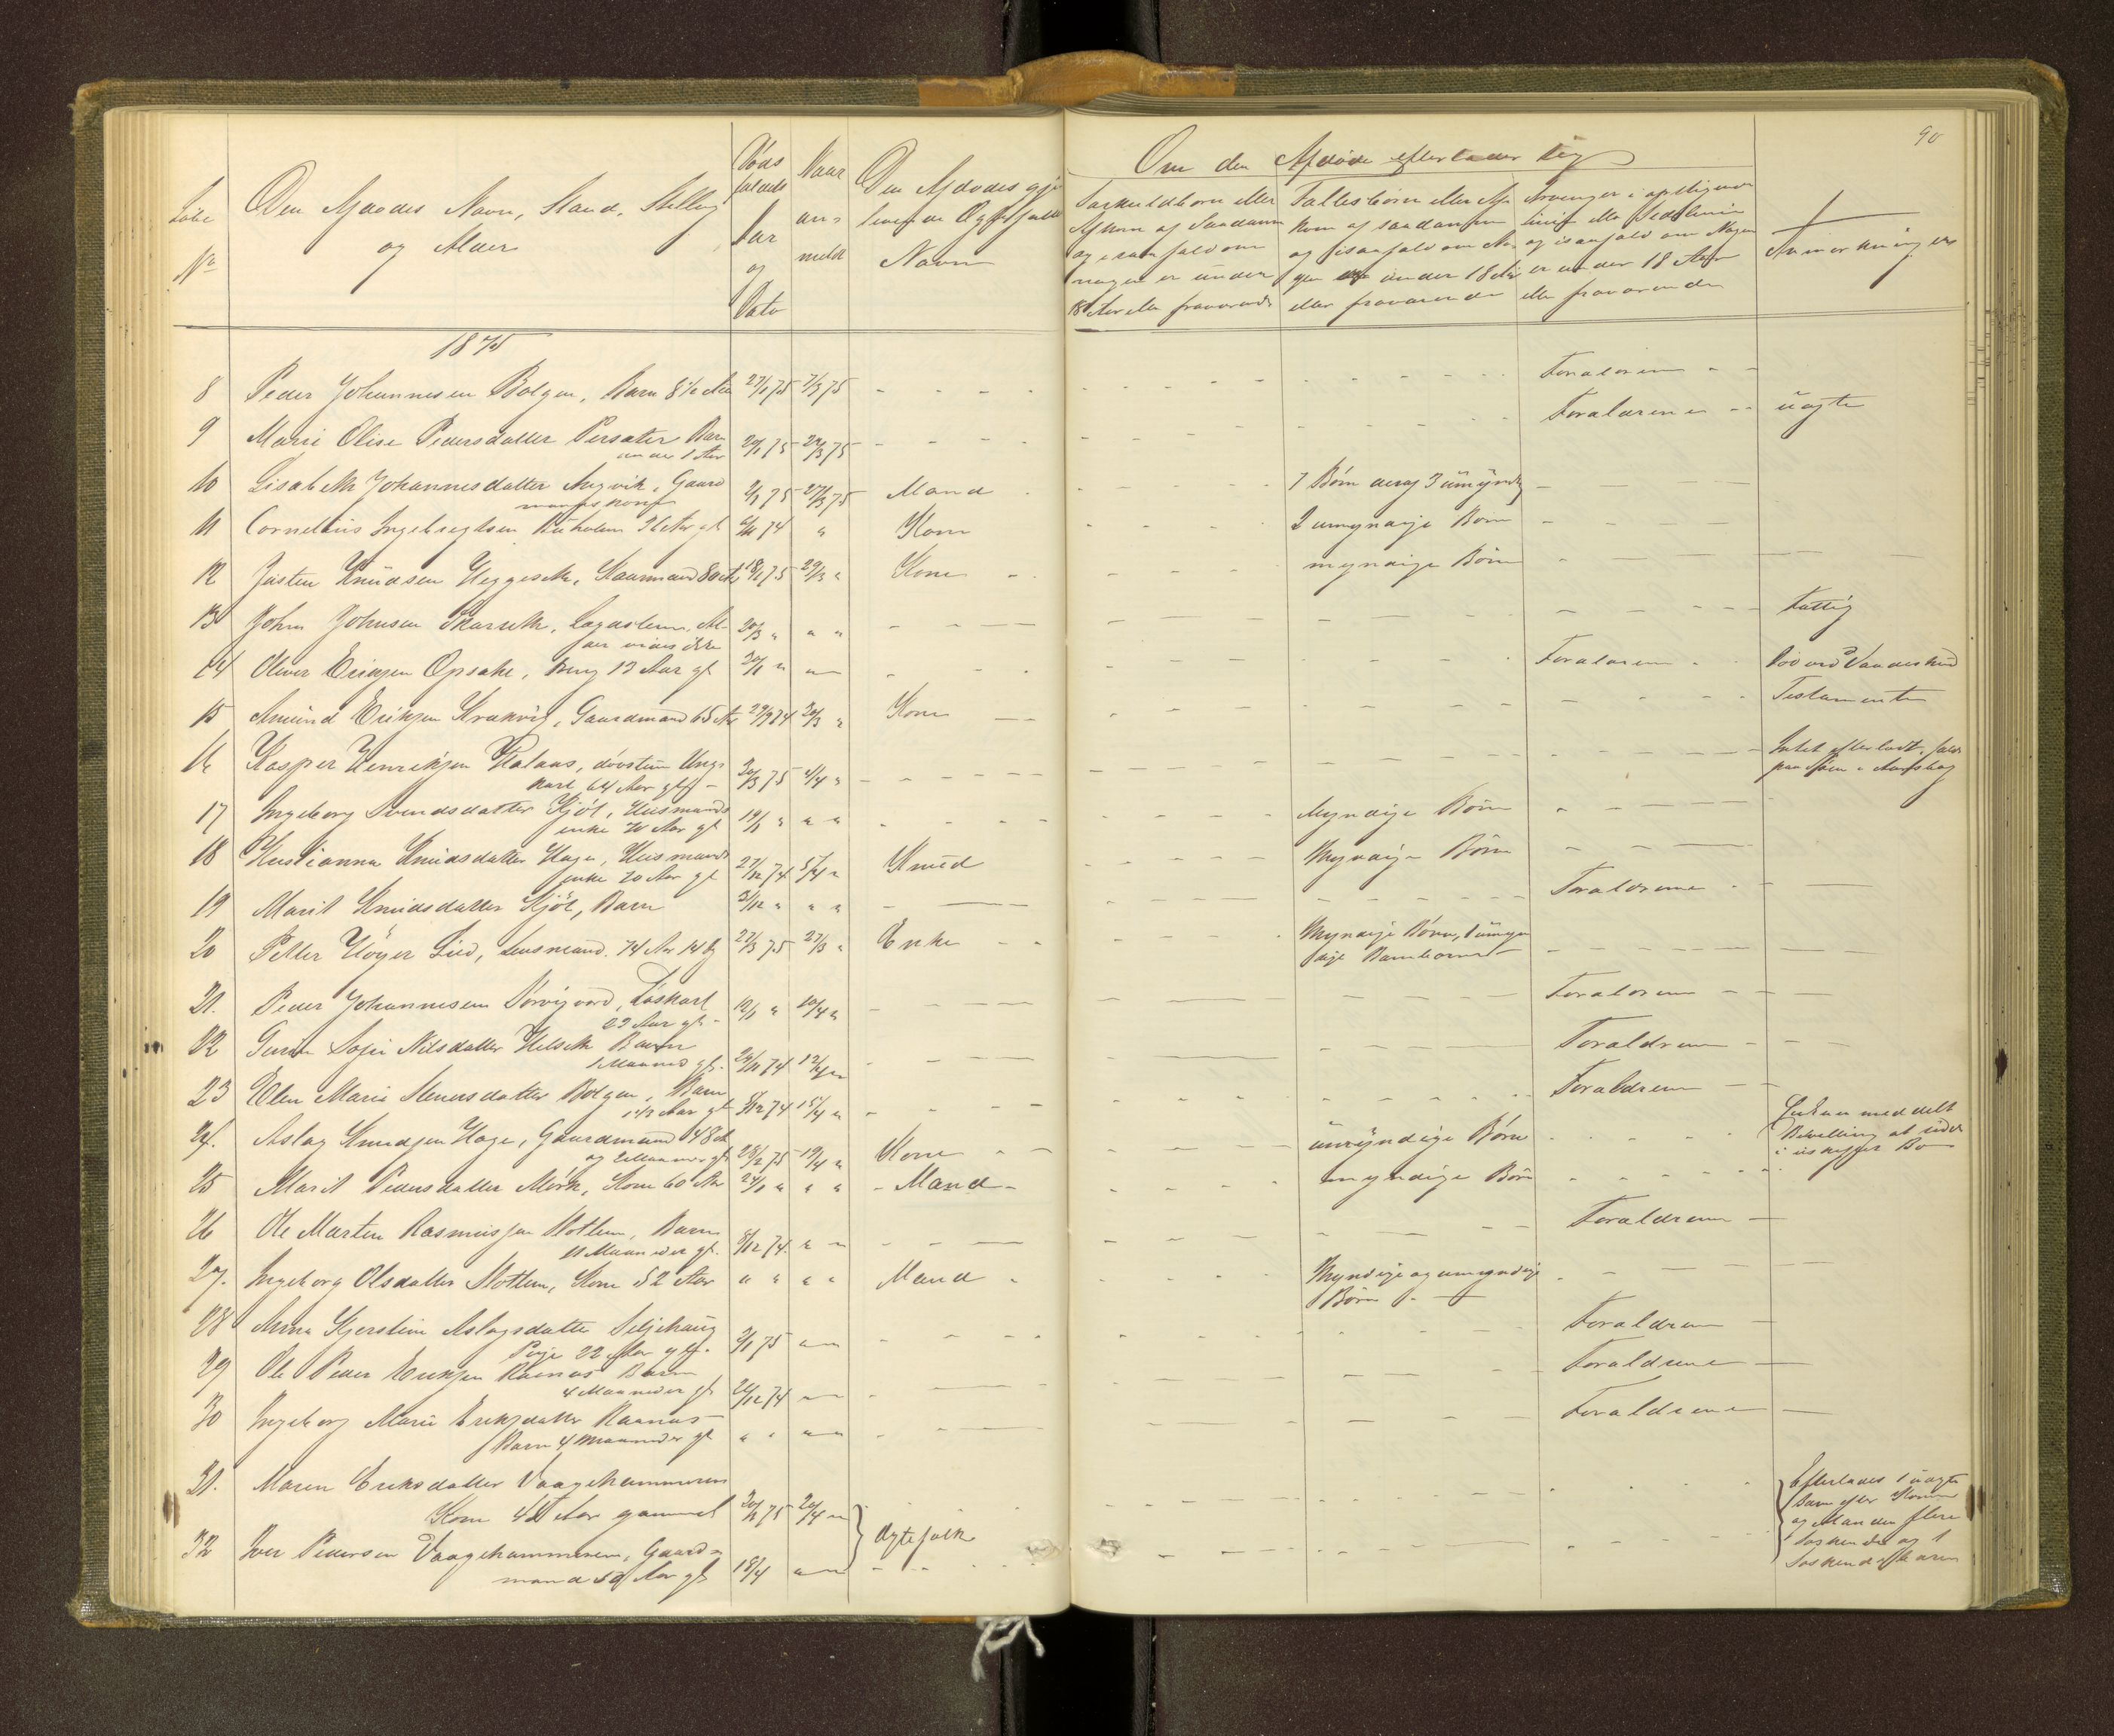 90
Løbe
No
Den Afdødes Navn, Stand, Stilling
og Alder
Døds
faldets
Aar
og
Dato
Naar
an-
meldt
Den Afdødes gje
levende Ægtefælle
Navn
Om den Afdøde efterlader sig
Særkuldbørn eller
Afkom af Saadanne
og i saa fald om
nogen er under
18 Aar eller fraværende
Fællesbørn eller Af
kom af saadanne
og i saa fald om No
gen er under 18 Aar
eller fraværende
Arvinger i opstigende
linie eller Sidelinie
og i saa fald om Nogen
er under 18 Aar
eller fraværende
Anmærkninger
1875
8 Peder Johannesen Bolgen, Barn 8 1/2 Aar 27/1 75 7/3 75 Forældrene
9 Marie Olise Pedersdatter Persæter Barn
under 1 Aar 20/1 75 24/3 75 Forældrene uægte
10 Lisabeth Johannesdatter Angvik, Gaard
mandskone 2/1 75 27/3 75 Mand 7 Børn deraf 3 umyndig
11 Cornelius Ingebregtsen 74 " Kone 2 umyndige Børn
12 Josten Knudsen Heggeseth, Kaarmand 80 Aar 18/1 75 29/3 " Kone myndige Børn
13 John Johnsen Skarseth, Lægdslem, Al-
der vides ikke 20/3 " " " Fattig
14 Oliver Eriksen Opsahl, Dreng 13 Aar gl 30/1 " " Forældrene Død ved Vaadeskud
15 Amund Eriksen Krakvig, Gaardmand 65 Aar 29/9 74 30/3 " Kone Testamente
16 Kasper Henriksen Halaas, døvstum Ung-
karl 64 Aar gl 30/3 75 4/4 " Intet efterladt,
17 Ingeborg Svendsdatter Kjöl, Huusmands
enke 70 Aar gl 19/1 " " " Myndige Børn
18 Kristianna Knudsdatter Hage, Huusmands
enke 70 Aar gl 27/12 74 5/4 " Knud Myndige Børn
19 Marit Knudsdatter Kjöl, Barn 3/12 " " " Forældrene
20 Petter Høyer Lied, Lensmand. 74 Aar 14 Dg 27/3 75 27/3 " Enke Myndige Børn, 1 umyn
dige Barnebarn
21. Peder Johannesen Sørvigvord, Løskarl
23 Aar gl- 12/1 " 10/4 " Forældrene
22 Guren Sofie Nilsdatter Helseth Barn
1 Maaned gl. 24/11 74 12/4 " Forældrene
23 Elen Marie Stenersdatter Bolgen, Barn
1 1/2 Aar gl 8/12 74 15/4 " Forældrene
24. Aslag Knudsen Hage, Gaardmand 48 Aar
og 2 Maaneder gl 28/2 75 19/4 " Kone umyndige Børn Enken meddelt
Bevilling at sidde
i uskiftet Bo
25 Marit Pedersdatter Mörk, Kone 60 Aar 24/1 " " " Mand myndige Børn
26 Ole Martin Rasmussen Stotlem, Barn
11 Maaneder gl. 8/12 74 " " Forældrene
27. Ingeborg Olsdatter Stotlem, Kone 52 Aar " " " " Mand Myndige og umyndige
Børn
28 Anne Kjerstine Aslagsdatter Seljehaug
Pige 22 Aar gl. 3/1 75 " Forældrene
29 Ole Peder Eriksen Raanæs Barn
4 Maaneder gl 24/12 74 " Forældrene
30 Ingeborg Marie Eriksdatter Raanæs
Barn 4 Maaneder gl " " " Forældrene
31. Maren Eriksdatter Vaagehammeren
Kone 45 Aar gammel 75 20/4 " Ægtefolk
Efterlades 1 uægte
Barn efter Konen
og Manden flere
Søskende og 1
Søskendebarn
32 Iver Pedersen Vaagehammeren, Gaard-
mand 50 Aar gl 18/4 "